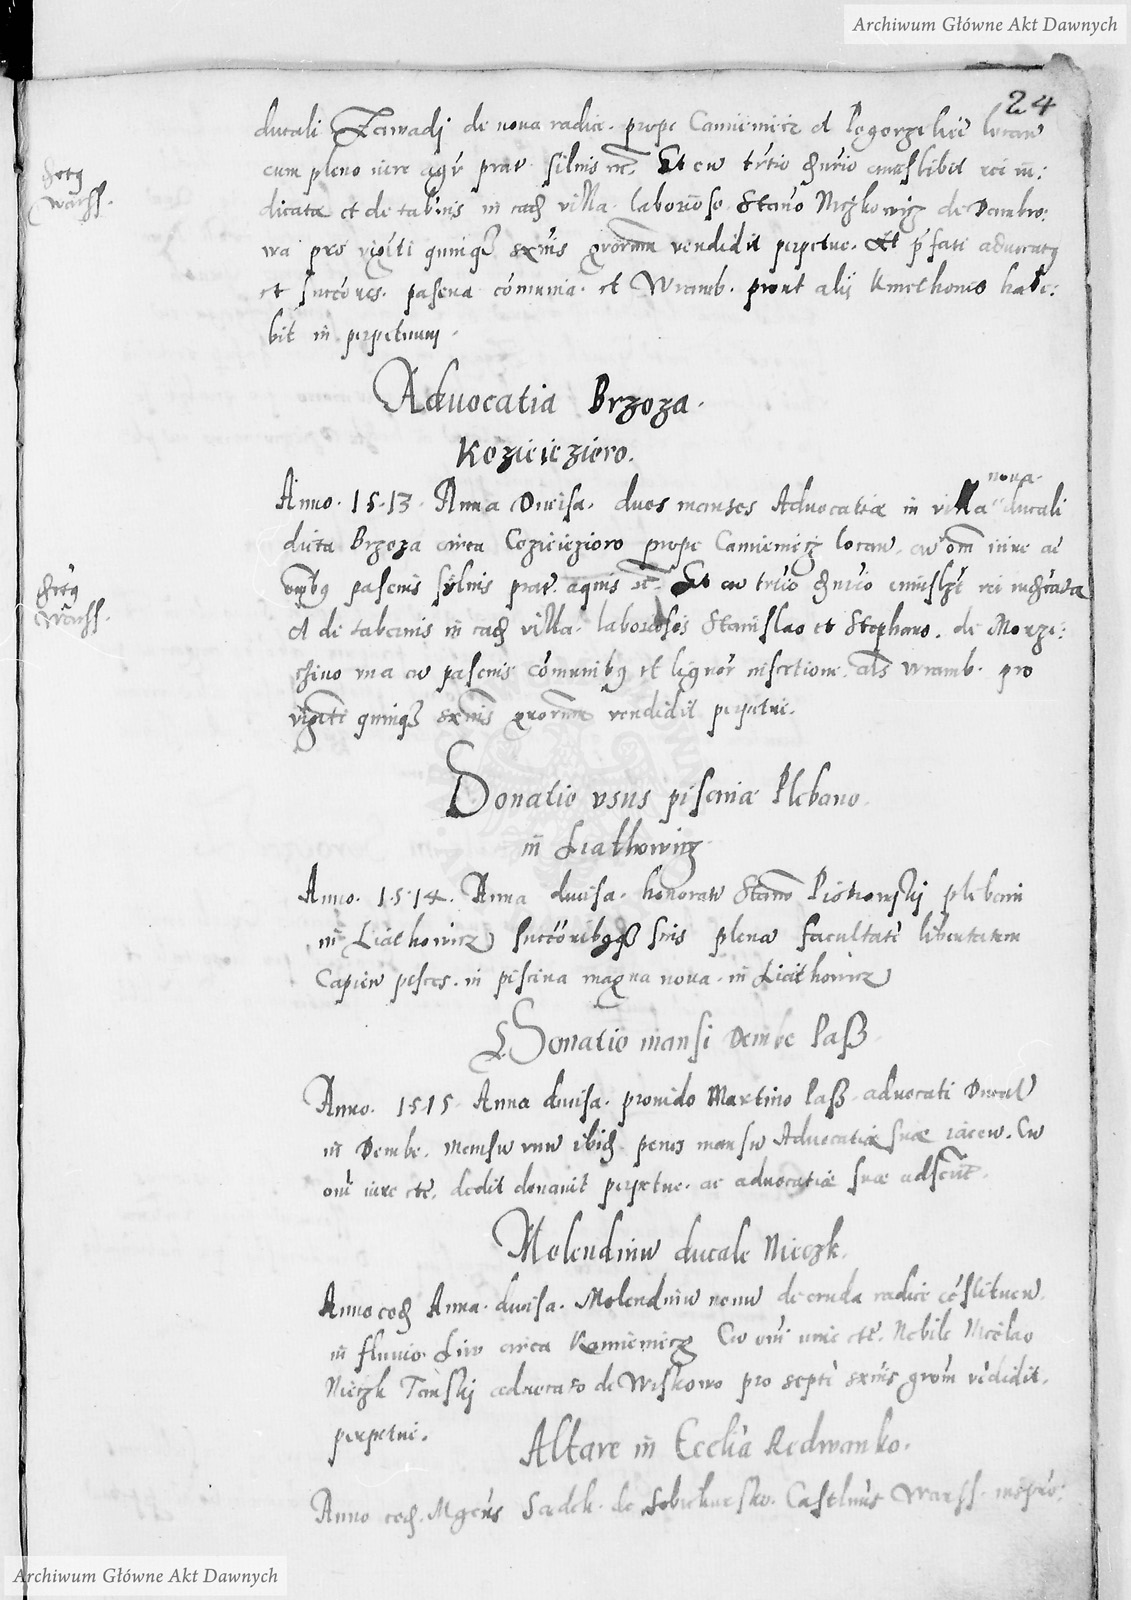 Archiwum Główne Akt Dawnych
24
ducali Zawadj de noua radice. prope Camiemicz et Pogorzeliecz locan
cum pleno iure agr prat siluis etc. Et cu trtio
Warss.
dicatæ et de tabnis in ead villa. laborioso Stano de Dembro:
wa pro viginti quinq sexnis grorum vendidit perpetue. Et p fati aduocatq
et succores. pascua comunia. et Wramb. prout alij Kmethones habe:
bit in perpetuum.
Aduocatia Brzoza.
Kozieieziero.
noua.
Anno. 1513. Anna Ducisa. duos mansos Aduocatiæ in villa ducali
dicta Brzoza circa Cozieiezioro prope Camiemicz locan. cu om iure ac
pascuis syluis prat. aquis etc. Et cu trtio
Warss.
et de tabernis in ead villa. laboriosis Stanislao et Stephano. de Morze:
vna cu pascuis comunibq et lignor als wramb. pro
viginti quinq sexnis grorum vendidit perpetue.
Donatio vsus piscinæ Plebano
in Liathowicz
Anno. 1514. Anna ducisa. honorat Stano Piotrowskj plebani
in Liathowicz succoribqq suis plena facultate libertatem
Capien pisces. in piscina magna noua. in Liathowicz
Donatio mansi Dembe Paß
Anno. 1515. Anna ducisa. prouido Martino Paß. aduocati Ducal
in Dembe. Mansu vnu ibid. penes mansu Aduocatiæ suæ iacen. Cu
omi iure etc. dedit donauit perpetue. ac aduocatiæ suæ
Molendinu ducale Nieczk.
Anno eod Anna. ducisa. Molendinu nouu de cruda radice costituen.
in fluuio Liw circa Kamiemicz Cu omi iure etc. Nobile
Nieczk Tanskj aduocato de Wiskowo pro septe sexnis grom vedidit.
perpetue.
Altare in Ecclia Redwanko.
Anno eod. Sadek. de Castlnus Warss.
Archiwum Główne Akt Dawnych